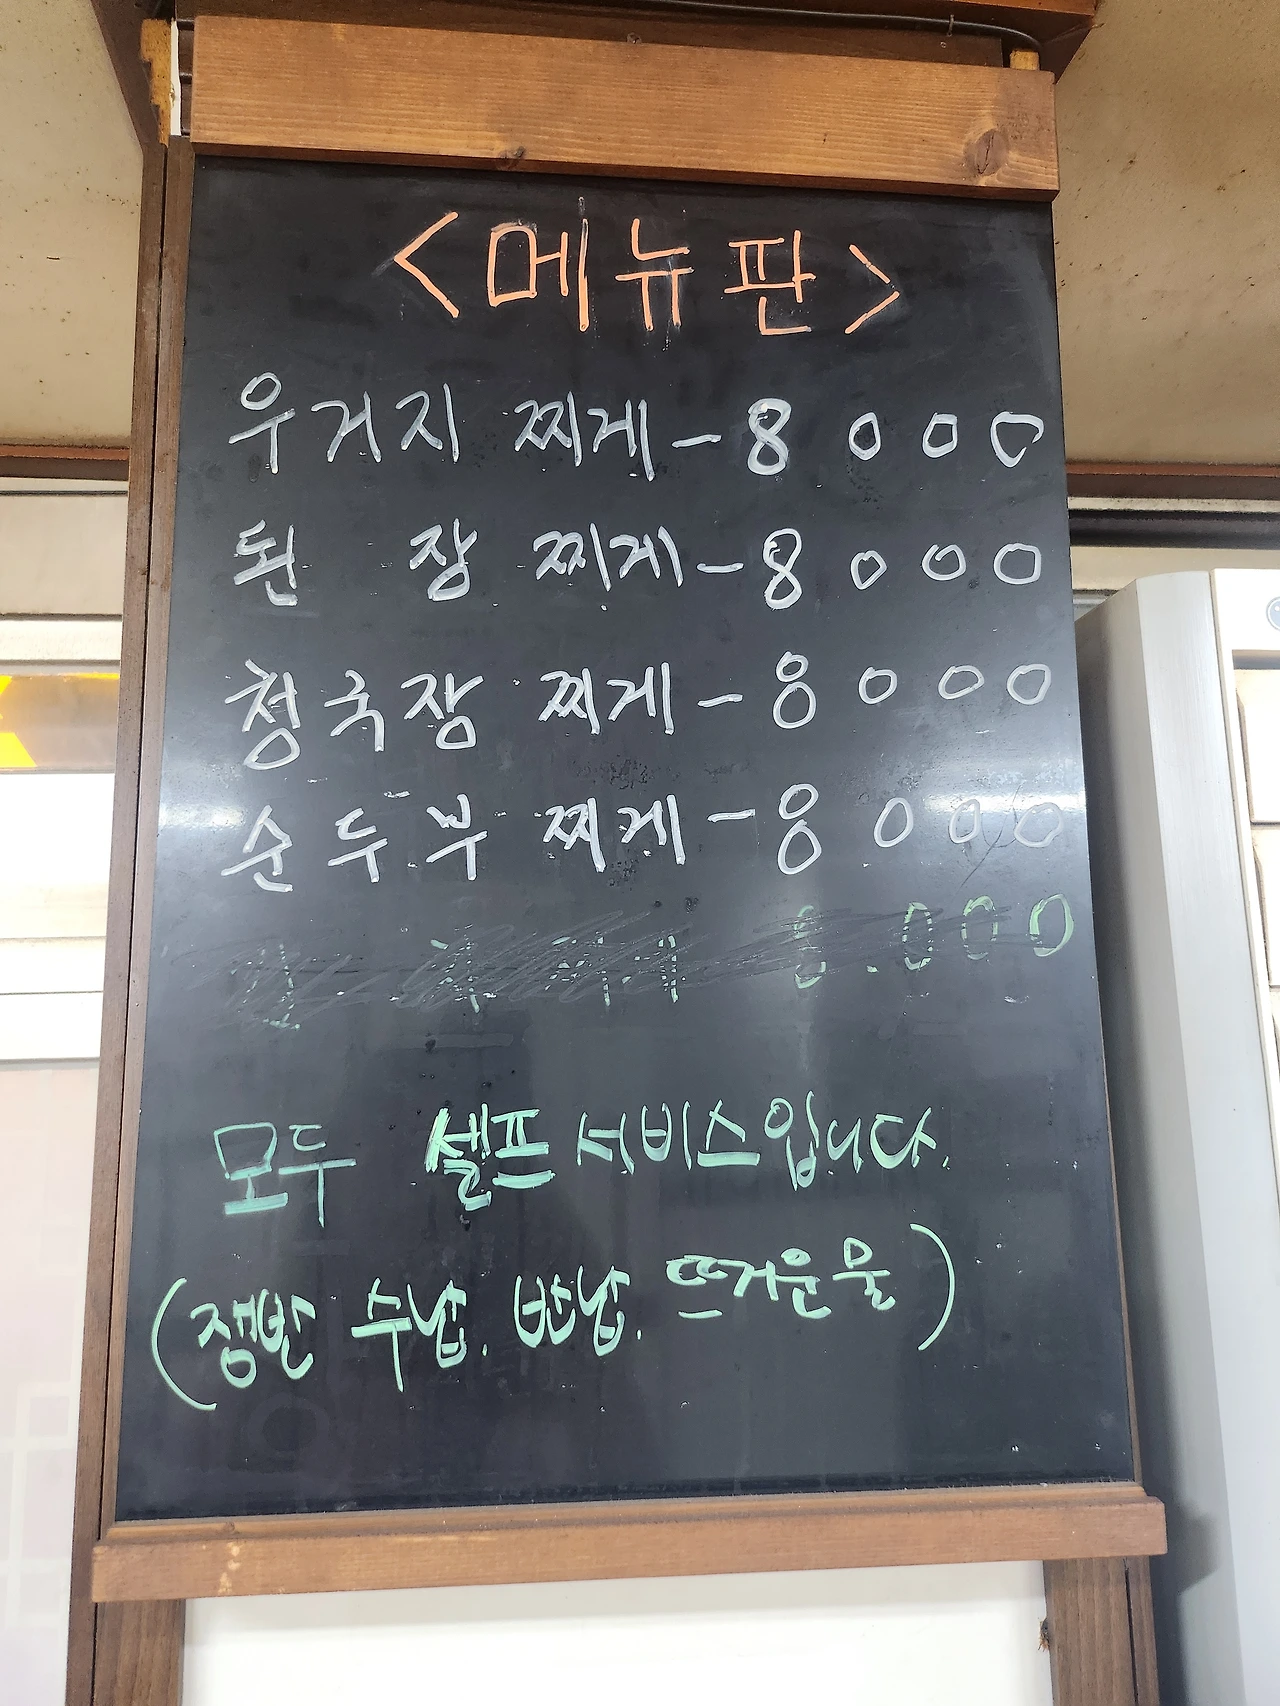 <메뉴판>
우거지 찌게-8000
된 장 찌게-8000
청국장 찌게-8000
순두부 찌게-8000
찌게 8.000
모두 셀프서비스입니다.
(쟁반 수납. 반납. 뜨거운물)